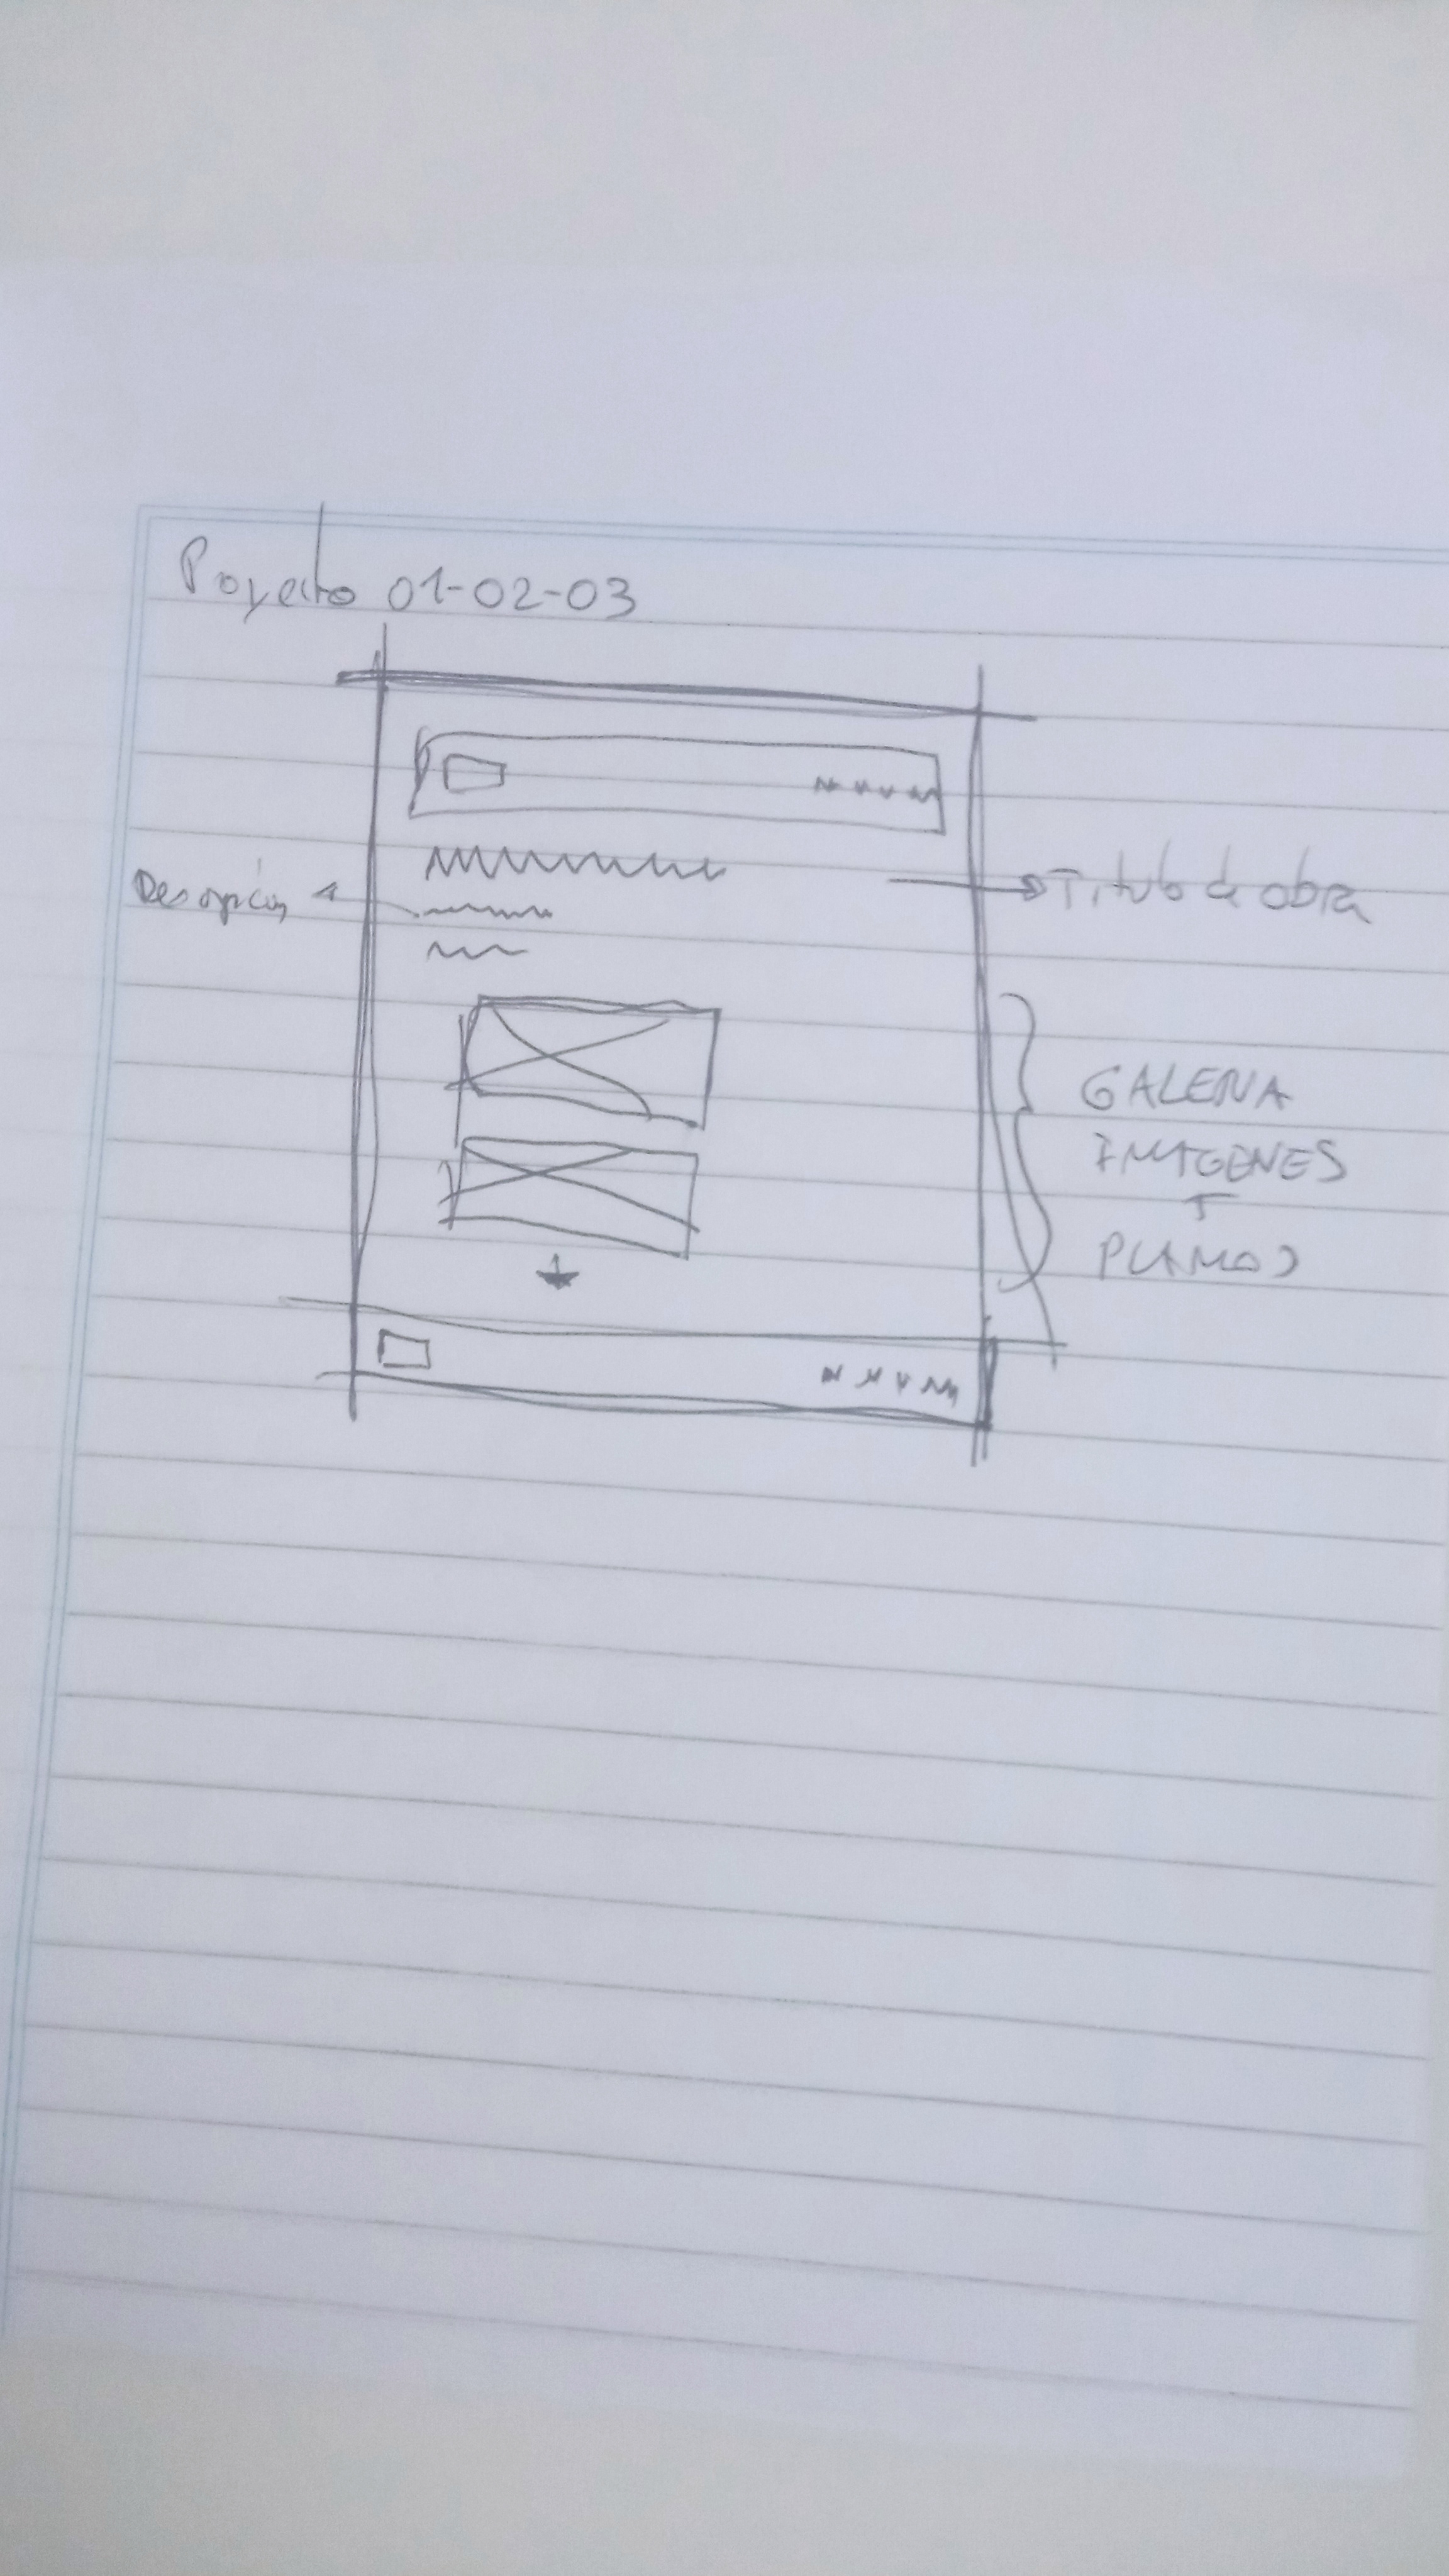 Proyecto 01-02-03
Descripción
Titulo de obra
GALERIA
IMAGENES
+
PLANOS